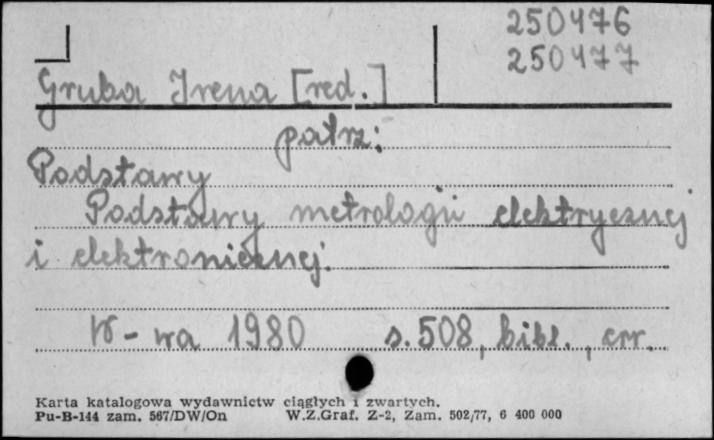 250476
250477
Gruba Irena [red.]
patrz:
Podstawy
Podstawy metrologii elektrycznej
i elektronicznej.
W-wa 1980 s. 508, bibl., err.
Karta katalogowa wydawnictw ciągłych i zwartych.
Pu-B-144 zam. 567/DW/On W.Z.Graf. Z-2, Zam. 502/77, 6 400 000